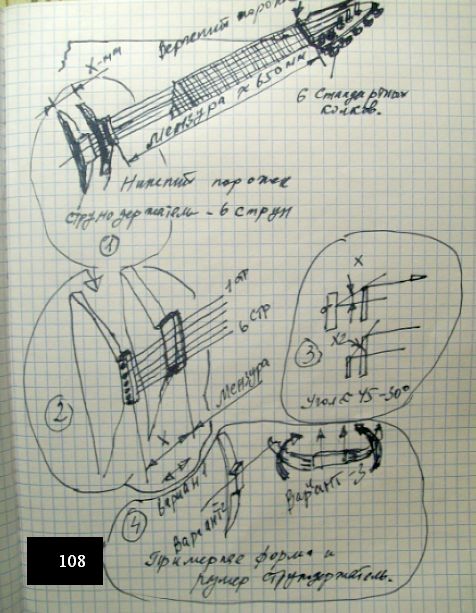 Верхний порожек
X-мм
Мензура ≈ 650мм
6 стандартных
колков.
Нижний порожек
струнодержатель - 6 струн
1
1 стр
6 стр
X
Мензура
2
Вариант 1
X
X2
3
Угол ≤ 45-50°
4
Вариант 2
Вариант-3
Примерная форма и
размер струнодержатель.
108